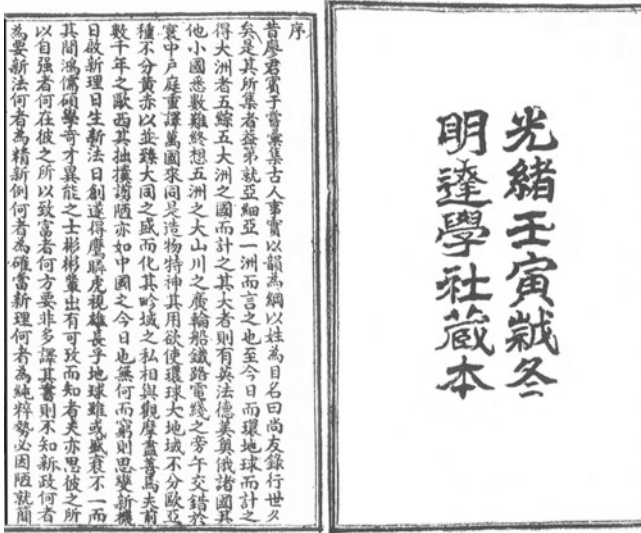 光緒壬寅歲冬
明達學社蔵本
序
昔廖君賓于嘗彙集古人事實以韻為綱以姓為目名曰尚友錄行世久
矣是其所集者益第就亞細亞一洲而言之也至今日而環地球而計之
得大洲者五綜五大洲之國而計之其大者則有英法德美奧俄諸國其
他小國悉數難終想五洲之大山川之廣輪船鐵路電綫之旁午交錯於
寰中戶庭重譯萬國來同是造物特神其用欲使環球大地域不分歐亞
種不分黃赤以並臻大同之盛而化其畛域之私相與觀摩盡善焉夫前
數千年之歐西其拙攘謭陋亦如中國之今日也無何而窮則思變新機
日啟新理日生新法日創遂得鷹瞵虎視雄長乎地球雖或盛衰不一而
其間鴻儒碩學奇才異能之士彬彬輩出有可攷而知者夫亦思彼之所
以自强者何在彼之所以致富者何方要非多譯其書則不知新政何者
為要新法何者為精新例何者為確當新理何者為純粹勢必因陋就簡